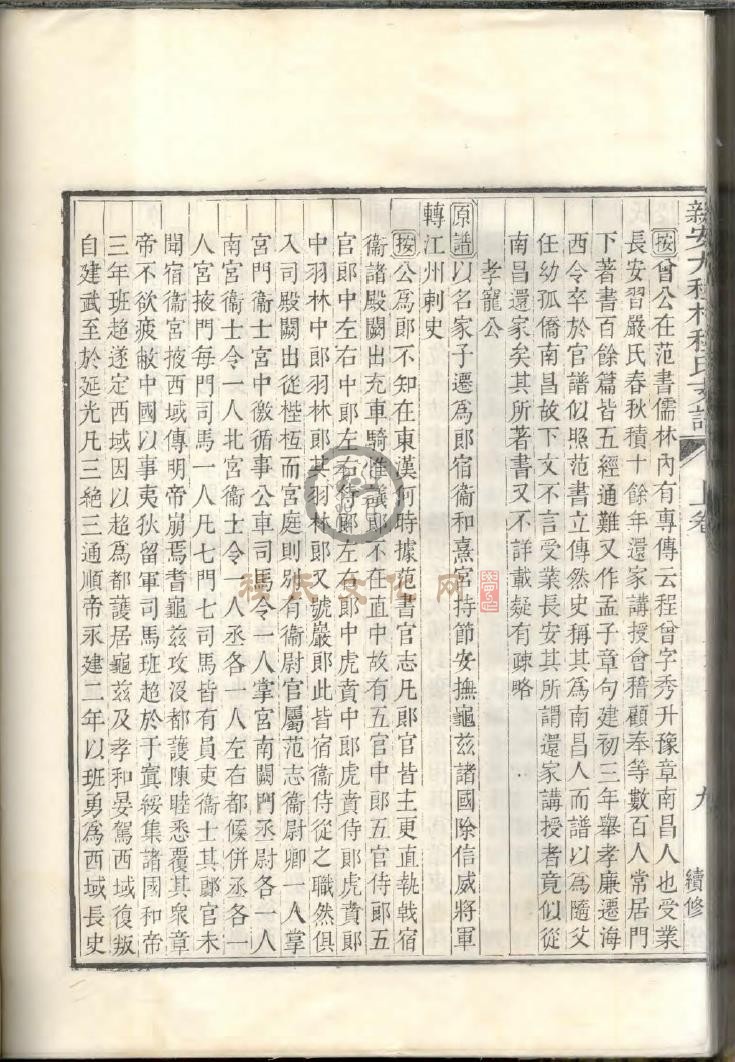 新安大程村程氏支譜
上卷
九
續修
按曾公在范書儒林內有專傳云程曾字秀升豫章南昌人也受業
長安習嚴氏春秋積十餘年還家講授會稽顧奉等數百人常居門
下著書百餘篇皆五經通難又作孟子章句建初三年舉孝廉遷海
西令卒於官譜似照范書立傳然史稱其爲南昌人而譜以爲隨父
任幼孤僑南昌故下文不言受業長安其所謂還家講授者竟似從
南昌還家矣其所著書又不詳載疑有疎略
孝寵公
原譜以名家子遷爲郞宿衞和熹宮持節安撫龜茲諸國除信威將軍
轉江州刺史
按公爲郞不知在東漢何時據范書官志凡郞官皆主更直執戟宿
衞諸殿闕出充車騎惟議郞不在直中故有五官中郞五官侍郞五
官郞中左右中郞左右侍郞左右郞中虎賁中郞虎賁侍郞虎賁郞
中羽林中郞羽林郞其羽林郞又號巖郞此皆宿衞侍從之職然俱
入司殿闕出從梐枑而宮庭則別有衞尉官屬范志衞尉卿一人掌
宮門衞士宮中徼循事公車司馬令一人掌宮南闕門丞尉各一人
南宮衞士令一人北宮衞士令一人丞各一人左右都候併丞各一
人宮掖門每門司馬一人凡七門七司馬皆有員吏衞士其郞官未
聞宿衞宮掖西域傳明帝崩焉耆龜茲攻沒都護陳睦悉覆其衆章
帝不欲疲敝中國以事夷狄留軍司馬班超於于寘綏集諸國和帝
三年班超遂定西域因以超爲都護居龜茲及孝和晏駕西域復叛
自建武至於延光凡三絕三通順帝永建二年以班勇爲西域長史
程氏文化网